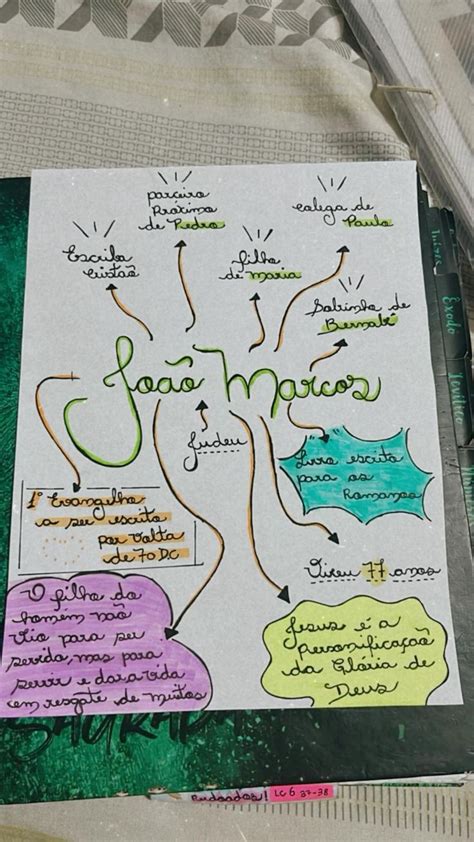 parceiro
Próximo
de Pedro
colega de
Paulo
Escriba
Cristão
filho
de maria
Sobrinho de
Bernabé
João Marcos
Judeu
Livro escrito
para os
Romanos
1º Evangelho
a ser escrito
por volta
de 70 D.C
Viveu 77 anos
O filho do
homem não
vio para ser
servido, mas para
servir e dar a vida
em resgate de muitos
Jesus é a
personificação
da Glória de
Deus
SAGRADA
Êxodo
Levítico
LC 6 37-38